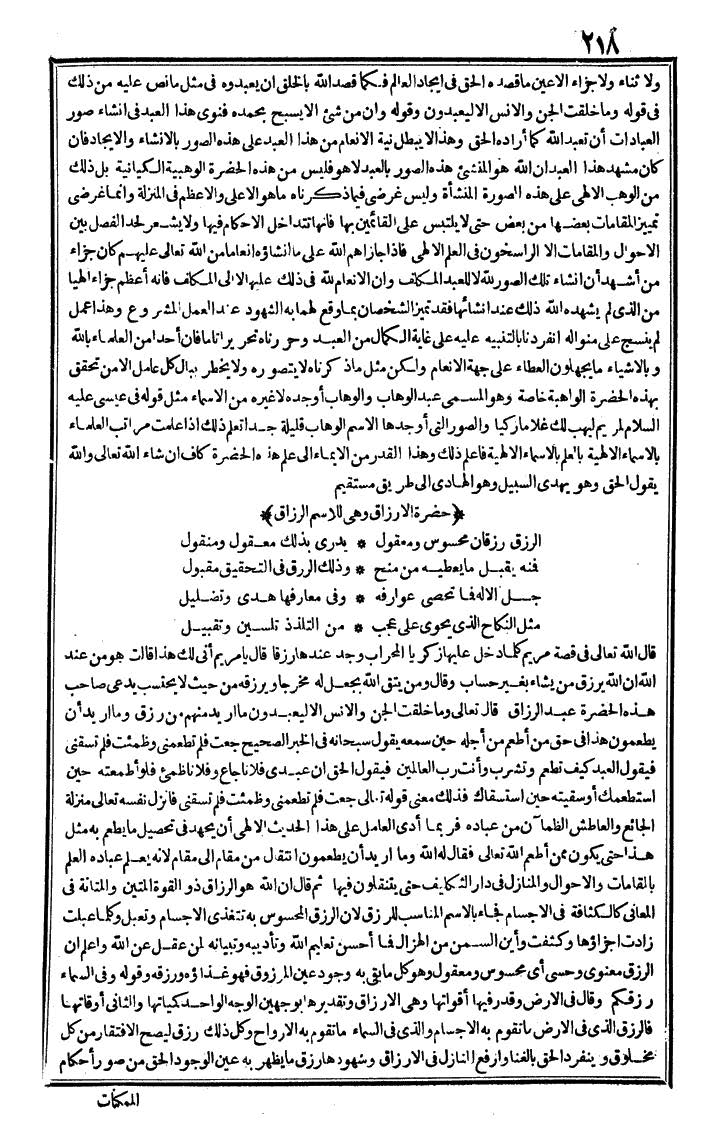 ٢١٨
ولا ثناء ولا جزاء الاعين ما قصده الحق فى ايجاد العالم فكما قصد الله بالخلق ان يعبدوه فى مثل ما نص عليه من ذلك
فى قوله وما خلقت الجن والانس الا ليعبدون وقوله وان من شئ الا يسبح بحمده فنوى هذا العبد فى انشاء صور
العبادات أن تعبد الله كما أراده الحق وهذا لا يبطل نية الانعام من هذا العبد على هذه الصور بالانشاء والايجاد فان
كان مشهد هذا العبد ان الله هو المنشئ هذه الصور بالعبد لا هو فليس من هذه الحضرة الوهبية الكيانية بل ذلك
من الوهب الالهى على هذه الصورة المنشأة وليس غرضى فيما ذكرناه ما هو الاعلى والاعظم فى المنزلة وانما غرضى
تمييز المقامات بعضها من بعض حتى لا يلتبس على القائمين بها فانها تتداخل الاحكام فيها ولا يشعر لحد الفصل بين
الاحوال والمقامات الا الراسخون فى العلم الالهى فاذا جازاهم الله على ما انشاؤه انعاما من الله تعالى عليهم كان جزاء
من أشهد أن انشاء تلك الصور لله لا للعبد المكلف وان الانعام لله فى ذلك عليها لا الى المكلف فانه أعظم جزاء الهيا
من الذى لم يشهده الله ذلك عند انشائها فقد تميز الشخصان بما وقع لهما به الشهود عند العمل المشروع وهذا عمل
لم ينسج على منواله انفردنا بالتنبيه عليه على غاية الكمال من العبد وحررناه تحريرا تاما فان أحدا من العلماء بالله
وبالاشياء ما يجهلون العطاء على جهة الانعام ولكن مثل ما ذكرناه لا يتصوره ولا يخطر ببال كل عامل الا من تحقق
بهذه الحضرة الواهبة خاصة وهو المسمى عبد الوهاب والوهاب أوجده لا غيره من الاسماء مثل قوله فى عيسى عليه
السلام لمريم ليهب لك غلاما زكيا والصور التى أوجدها الاسم الوهاب قليلة جدا تعلم ذلك اذا علمت مراتب العلماء
بالاسماء الالهية بالعلم بالاسماء الالهية فاعلم ذلك وهذا القدر من الايماء الى علم هذه الحضرة كاف ان شاء الله تعالى والله
يقول الحق وهو يهدى السبيل وهو الهادى الى طريق مستقيم
﴿حضرة الارزاق وهى للاسم الرزاق﴾
الرزق رزقان محسوس ومعقول * يدرى بذلك معقول ومنقول
فنه يقبل ما يعطيه من منح * وذلك الرزق فى التحقيق مقبول
جل الاله فما تحصى عوارفه * وفى معارفها هدى وتضليل
مثل النكاح الذى يحوى على عجب * من التلذذ تلسين وتقبيل
قال الله تعالى فى قصة مريم كلما دخل عليها زكريا المحراب وجد عندها رزقا قال يا مريم أنى لك هذا قالت هو من عند
الله ان الله يرزق من يشاء بغير حساب وقال ومن يتق الله يجعل له مخرجا ويرزقه من حيث لا يحتسب يدعى صاحب
هذه الحضرة عبد الرزاق قال تعالى وما خلقت الجن والانس الا ليعبدون ما أريد منهم من رزق وما أريد أن
يطعمون هذا فى حق من أطعم من أجله حين سمعه يقول سبحانه فى الخبر الصحيح جعت فلم تطعمنى وظمئت فلم تسقنى
فيقول العبد كيف تطعم وتشرب وأنت رب العالمين فيقول الحق ان عبدى فلانا جاع وفلانا ظمئ فلو أطعمته حين
استطعمك أو سقيته حين استسقاك فذلك معنى قوله تعالى جعت فلم تطعمنى وظمئت فلم تسقنى فانزل نفسه تعالى منزلة
الجائع والعاطش الظمآن من عباده فربما أدى العامل على هذا الحديث الالهى أن يجهد فى تحصيل ما يطعم به مثل
هذا حتى يكون ممن أطعم الله تعالى فقال له الله وما اريد أن يطعمون انتقال من مقام الى مقام لانه يعلم عباده العلم
بالمقامات والاحوال والمنازل فى دار التكليف حتى يتنقلون فيها ثم قال ان الله هو الرزاق ذو القوة المتين والمتانة فى
المعانى كالكثافة فى الاجسام فجاء بالاسم المناسب للرزق لان الرزق المحسوس به تتغذى الاجسام وتعبل وكلما عبلت
زادت اجزاؤها وكثفت وأين السمن من الهزال فما أحسن تعليم الله وتأديبه وتبيانه لمن عقل عن الله واعلم ان
الرزق معنوى وحسى أى محسوس ومعقول وهو كل ما بقى به وجود عين المرزوق فهو غذاؤه ورزقه وقوله وفى السماء
رزقكم وقال فى الارض وقدر فيها أقواتها وهى الارزاق وتقديرها بوجهين الوجه الواحد كمياتها والثانى أوقاتها
فالرزق الذى فى الارض ما تقوم به الاجسام والذى فى السماء ما تقوم به الارواح وكل ذلك رزق ليصح الافتقار من كل
مخلوق وينفرد الحق بالغنا وارفع المنازل فى الارزاق وشهودها رزق ما يظهر به عين الوجود الحق من صور أحكام
الممكنات